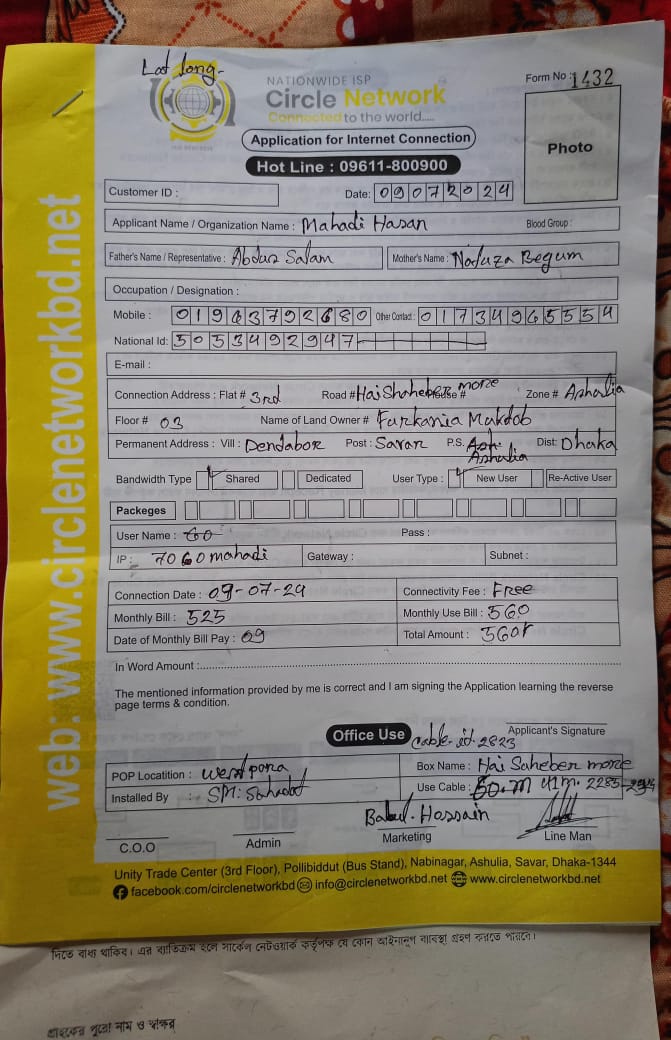 Lat long-
NATIONWIDE ISP
Circle Network
Connected to the world.....
Form No : 1432
Application for Internet Connection
Hot Line : 09611-800900
Photo
Customer ID :
Date: 09072024
Applicant Name / Organization Name : Mahadi Hasan Blood Group :
Father's Name / Representative : Abdus Salam Mother's Name : Begum
Occupation / Designation :
Mobile : Other Contact : 01734965554
National Id: 5053492947
E-mail :
Connection Address : Flat # 3rd Road # Hai Shaheber more Zone # Ashulia
Floor # 03 Name of Land Owner # Furkania Maktob
Permanent Address : Vill : Dendabor Post : Savar P.S. Ashulia Dist: Dhaka
Bandwidth Type Shared Dedicated User Type : New User Re-Active User
Packeges
User Name : Pass :
IP : 7060mahadi Gateway : Subnet :
Connection Date : 09-07-24 Connectivity Fee : Free
Monthly Bill : 525 Monthly Use Bill : 360
Date of Monthly Bill Pay : 09 Total Amount :
In Word Amount :
The mentioned information provided by me is correct and I am signing the Application learning the reverse
page terms & condition.
Office Use Cable. id. 2823 Applicant's Signature
POP Locatition : West para Box Name : Hai Saheber more
Installed By : SM: Use Cable : 50.m
Babul. Hossain
C.O.O Admin Marketing Line Man
Unity Trade Center (3rd Floor), Pollibiddut (Bus Stand), Nabinagar, Ashulia, Savar, Dhaka-1344
facebook.com/circlenetworkbd info@circlenetworkbd.net www.circlenetworkbd.net
web: www.circlenetworkbd.net
দিতে বাধ্য থাকিব। এর ব্যতিক্রম হলে সার্কেল নেটওয়ার্ক কর্তৃপক্ষ যে কোন আইনানুগ ব্যবস্থা গ্রহণ করতে পারবে।
গ্রাহকের পুরো নাম ও স্বাক্ষর